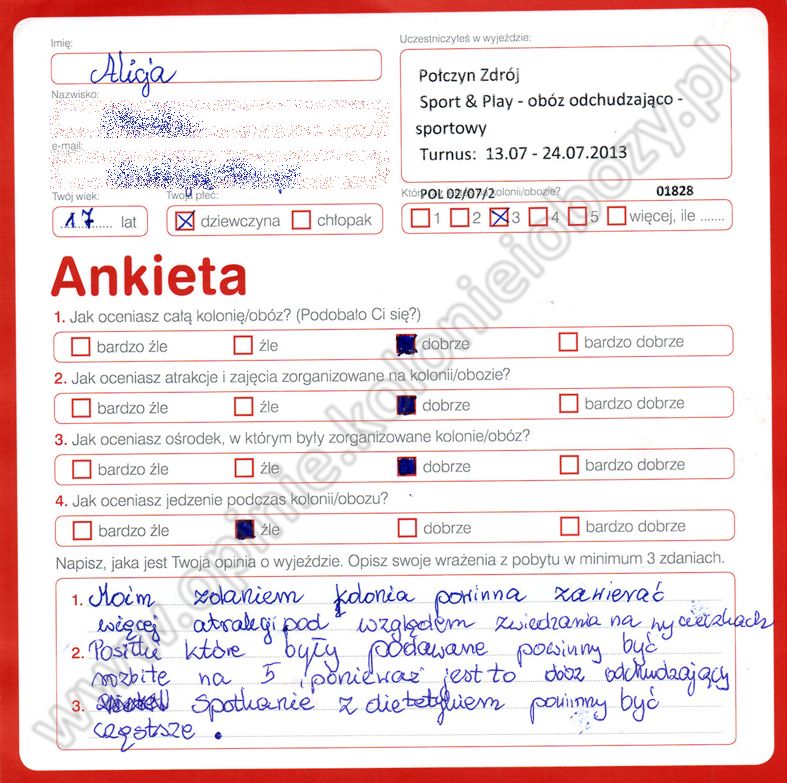 Imię:
Alicja
Uczestniczyłeś w wyjeździe:
Połczyn Zdrój
Sport & Play - obóz odchudzająco -
sportowy
Turnus: 13.07 - 24.07.2013
Nazwisko:
e-mail:
Twój wiek:
17 lat
Twoja płeć:
dziewczyna chłopak
kolonii/obozie?
POL 02/07/2 01828
1 2 3 4 5 więcej, ile .......
Ankieta
1. Jak oceniasz całą kolonię/obóz? (Podobało Ci się?)
bardzo źle źle dobrze bardzo dobrze
2. Jak oceniasz atrakcje i zajęcia zorganizowane na kolonii/obozie?
bardzo źle źle dobrze bardzo dobrze
3. Jak oceniasz ośrodek, w którym były zorganizowane kolonie/obóz?
bardzo źle źle dobrze bardzo dobrze
4. Jak oceniasz jedzenie podczas kolonii/obozu?
bardzo źle źle dobrze bardzo dobrze
Napisz, jaka jest Twoja opinia o wyjeździe. Opisz swoje wrażenia z pobytu w minimum 3 zdaniach.
1. Moim zdaniem kolonia powinna zawierać
więcej atrakcji pod względem zwiedzania na wycieczkach
2. Posiłki które były podawane powinny być
rozbite na 5, ponieważ jest to obóz odchudzający
3. Spotkanie z dietetykiem powinny być
częstsze.
www.opinie.kolonieiobozy.pl